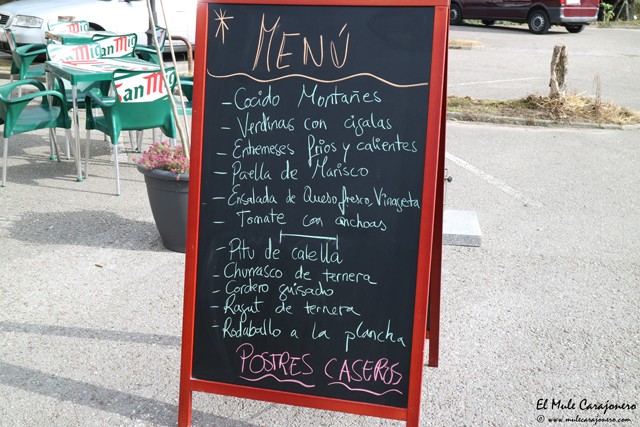 MENÚ
- Cocido Montañes
- Verdinas con cigalas
- Entremeses frios y calientes
- Paella de Marisco
- Ensalada de Queso fresco, Vinagreta
- Tomate con anchoas
- Pitu de calella
- Churrasco de ternera
- Cordero guisado
- Ragut de ternera
- Rodaballo a la plancha
POSTRES CASEROS
San MIG
San MIG
San MIG
El Mule Carajonero
© www.mulecarajonero.com